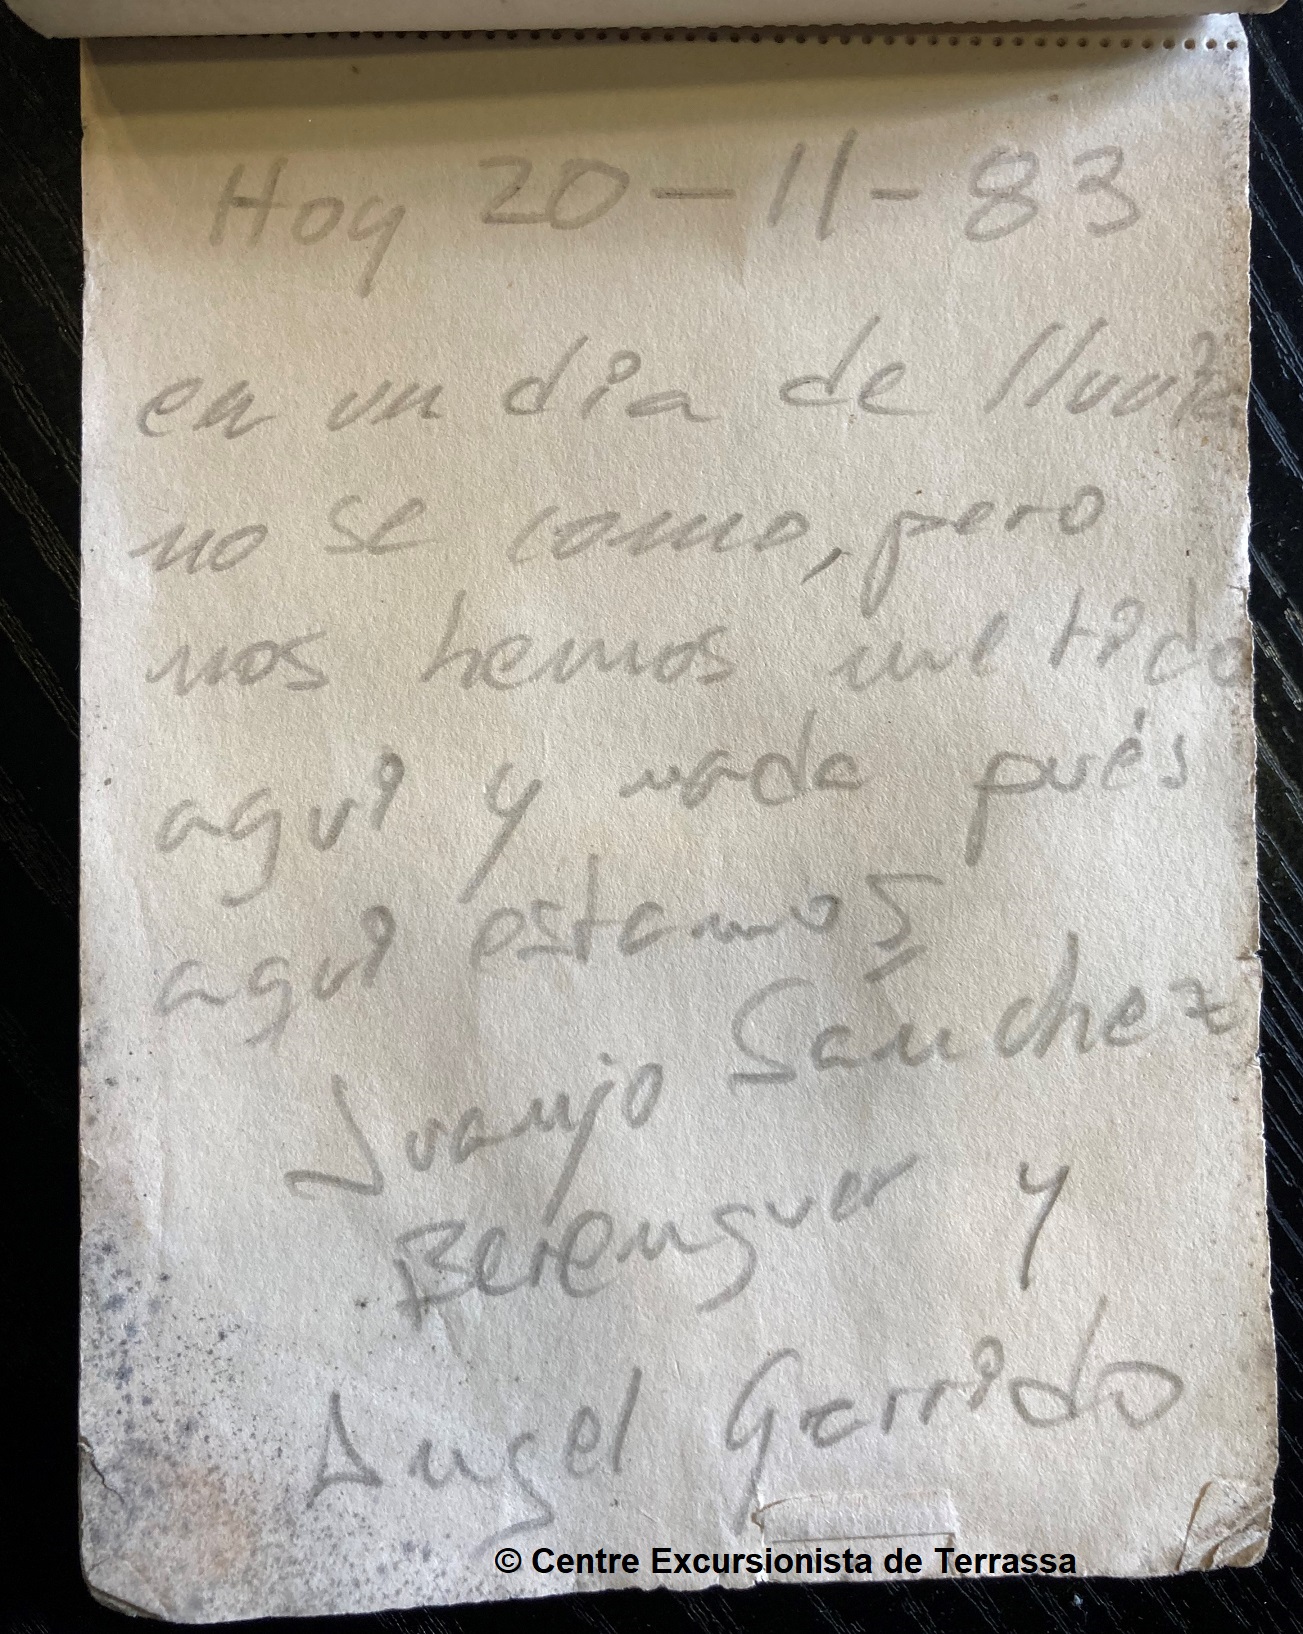 Hoy 20-11-83
en un dia de lluvia
no se como, pero
nos hemos metido
aqui y nada pués
aqui estamos
Juanjo Sanchez
Berenguer y
Angel Garrido
© Centre Excursionista de Terrassa